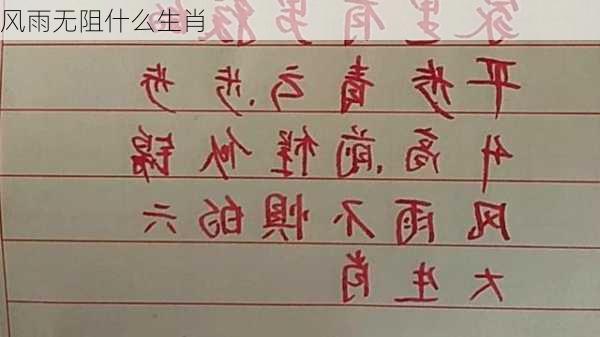 风雨无阻什么生肖
家里有男孩的
平步青云,步步
升高,前程似锦
风雨不惧的六
大生肖